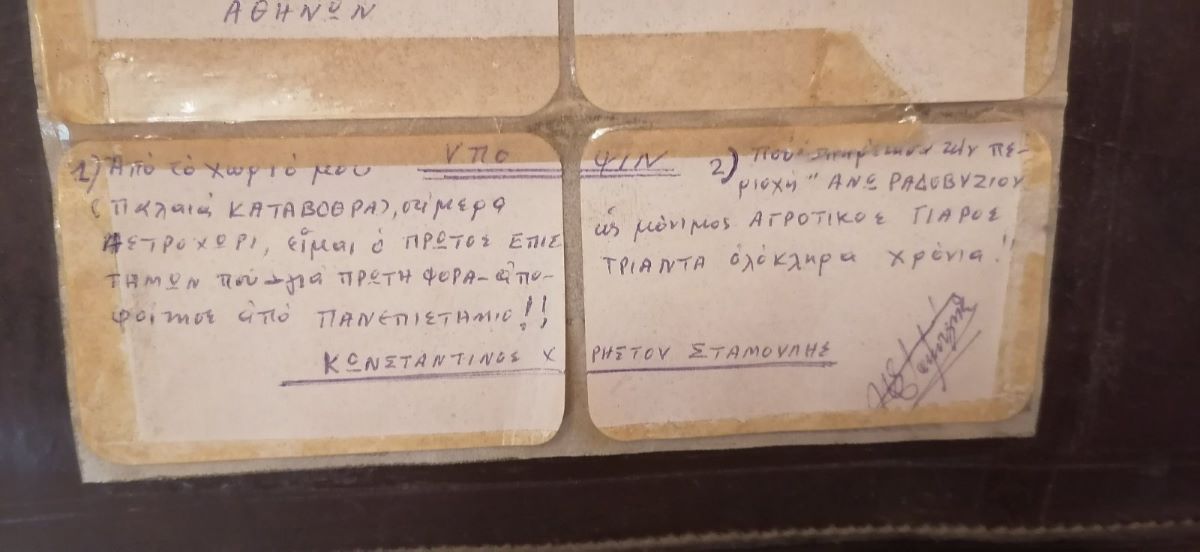 ΑΘΗΝΩΝ
ΥΠΟ ΨΙΝ
1) Ἀπό τό χωριό μου
(Παλαιά ΚΑΤΑΒΟΘΡΑ), σήμερα
ΠΕΤΡΟΧΩΡΙ, εἶμαι ὁ ΠΡΩΤΟΣ ΕΠΙΣ
ΤΗΜΩΝ πού - γιά ΠΡΩΤΗ ΦΟΡΑ - ἀπο-
φοίτησε ἀπό ΠΑΝΕΠΙΣΤΗΜΙΟ!!
2) Πού ὑπηρέτησα τήν πε-
ριοχή " ΑΝΩ ΡΑΔΟΒΥΖΙΟΥ
ὡς μόνιμος ΑΓΡΟΤΙΚΟΣ ΓΙΑΡΟΣ
ΤΡΙΑΝΤΑ ὁλόκληρα χρόνια!!
ΚΩΝΣΤΑΝΤΙΝΟΣ ΧΡΗΣΤΟΥ ΣΤΑΜΟΥΛΗΣ